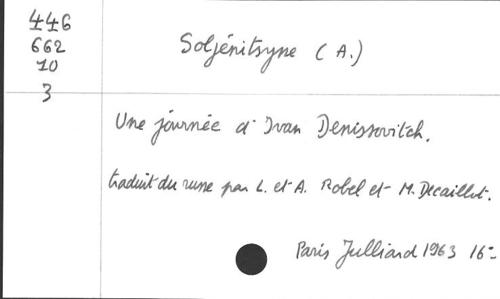 446
662
10
3
Soljénitsyne (A.)
Une journée d'Ivan Denissovitch.
traduit du russe par L. et A. Robel et M. Decaillot.
Paris Julliard 1963 16°